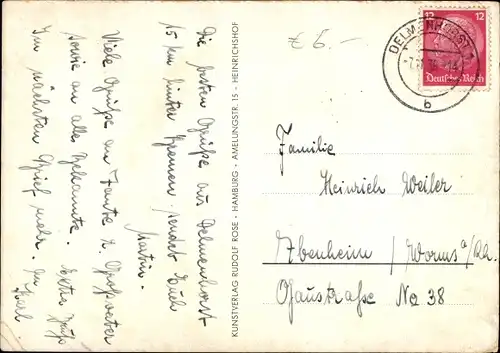 Die besten Grüße aus Delmenhorst
15 km hinter Bremen. sendet Euch
Martin.
Viele Grüße an Tante & Großvater
sowie an alle Bekannte.
Im nächsten Brief mehr.
KUNSTVERLAG RUDOLF ROSE - HAMBURG - AMELUNGSTR. 15 - HEINRICHSHOF
€ 6.–
DELMENHORST
b
12 12
Deutsches Reich
Familie
Heinrich Weiler
Abenheim / Worms a/Rh.
No 38